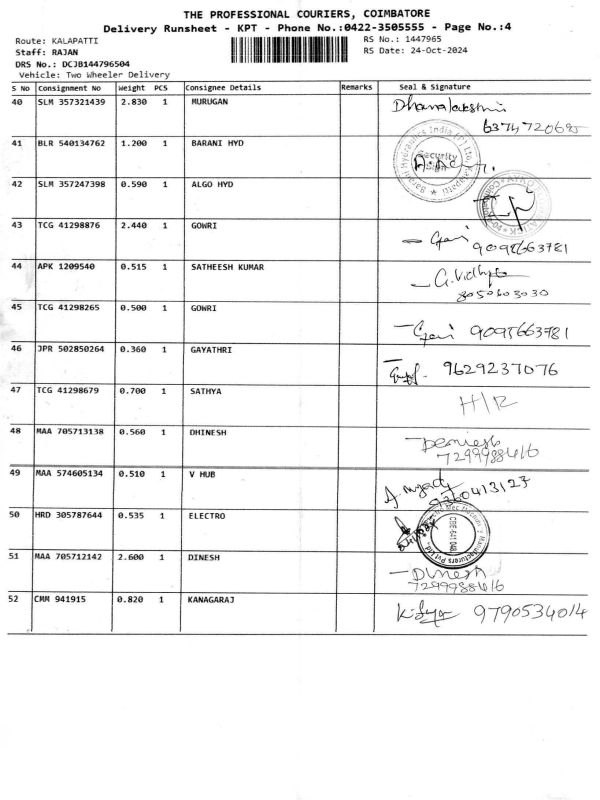 THE PROFESSIONAL COURIERS, COIMBATORE
Delivery Runsheet - KPT - Phone No.:0422-3505555 - Page No.:4
Route: KALAPATTI
RS No.: 1447965
Staff: RAJAN
RS Date: 24-Oct-2024
DRS No.: DCJB144796504
Vehicle: Two Wheeler Delivery
S No Consignment No Weight PCS Consignee Details Remarks Seal & Signature
40 SLM 357321439 2.830 1 MURUGAN Dhanalakshmi
6374720685
41 BLR 540134762 1.200 1 BARANI HYD
Barani Hydraulics India (P) Ltd, Kalapatti
Security
42 SLM 357247398 0.590 1 ALGO HYD
43 TCG 41298876 2.440 1 GOWRI
9095663781
44 APK 1209540 0.515 1 SATHEESH KUMAR G.Vidhya
8050603030
45 TCG 41298265 0.500 1 GOWRI 9095663781
46 JPR 502850264 0.360 1 GAYATHRI 9629237076
47 TCG 41298679 0.700 1 SATHYA H/R
48 MAA 705713138 0.560 1 DHINESH
7299988416
49 MAA 574605134 0.510 1 V HUB
9360413123
50 HRD 305787644 0.535 1 ELECTRO
CBE-641 048
Manufacturers Pvt Ltd.
51 MAA 705712142 2.600 1 DINESH
Dinesh
7299988416
52 CMM 941915 0.820 1 KANAGARAJ 9790534014